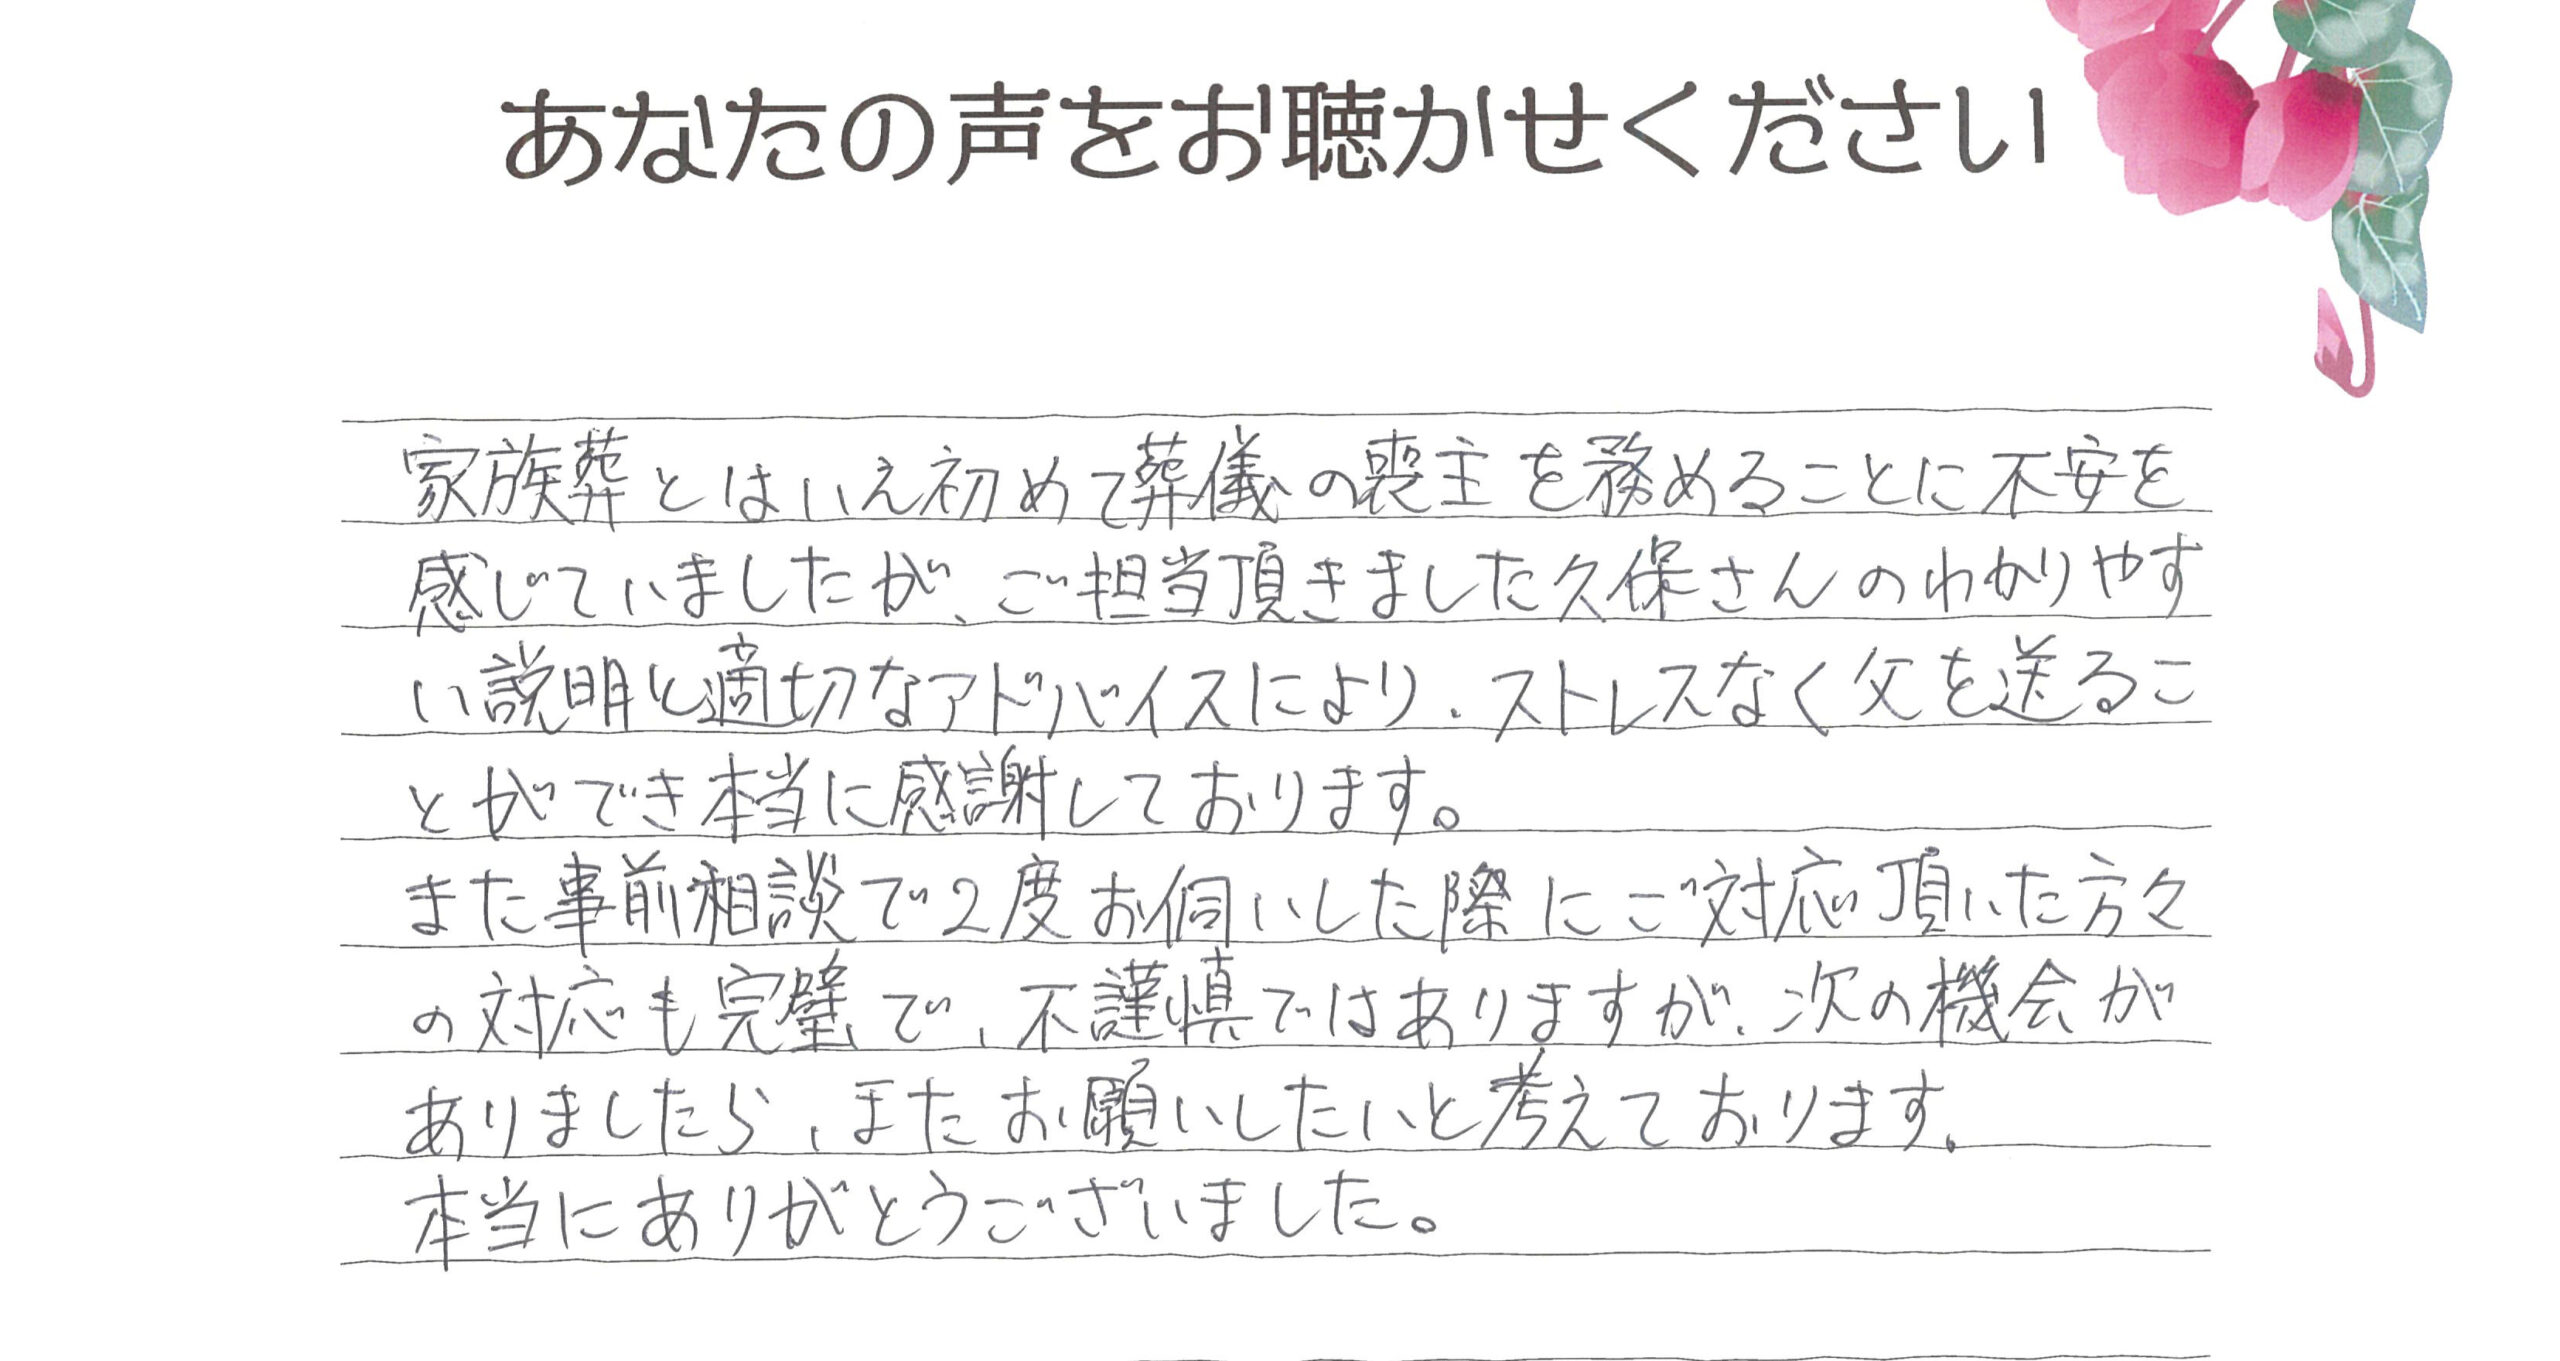 あなたの声をお聴かせください
家族葬とはいえ初めて葬儀の喪主を務めることに不安を
感じていましたが、ご担当頂きました久保さんのわかりやす
い説明と適切なアドバイスにより、ストレスなく父を送るこ
とができ本当に感謝しております。
また事前相談で2度お伺いした際にご対応頂いた方々
の対応も完璧で、不謹慎ではありますが、次の機会が
ありましたら、またお願いしたいと考えております。
本当にありがとうございました。